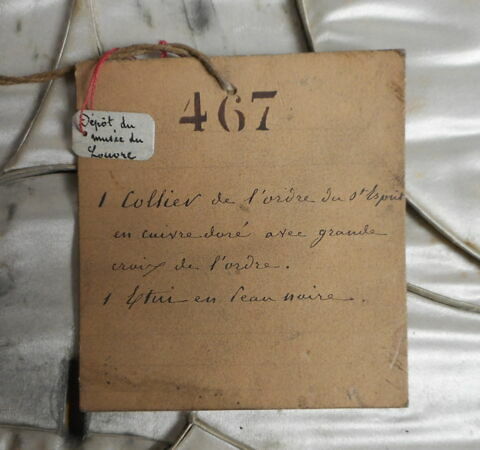 467
Dépôt du
musée du
Louvre
1 Collier de l'ordre du St Esprit
en cuivre doré avec grande
croix de l'ordre.
1 Etui en peau noire.